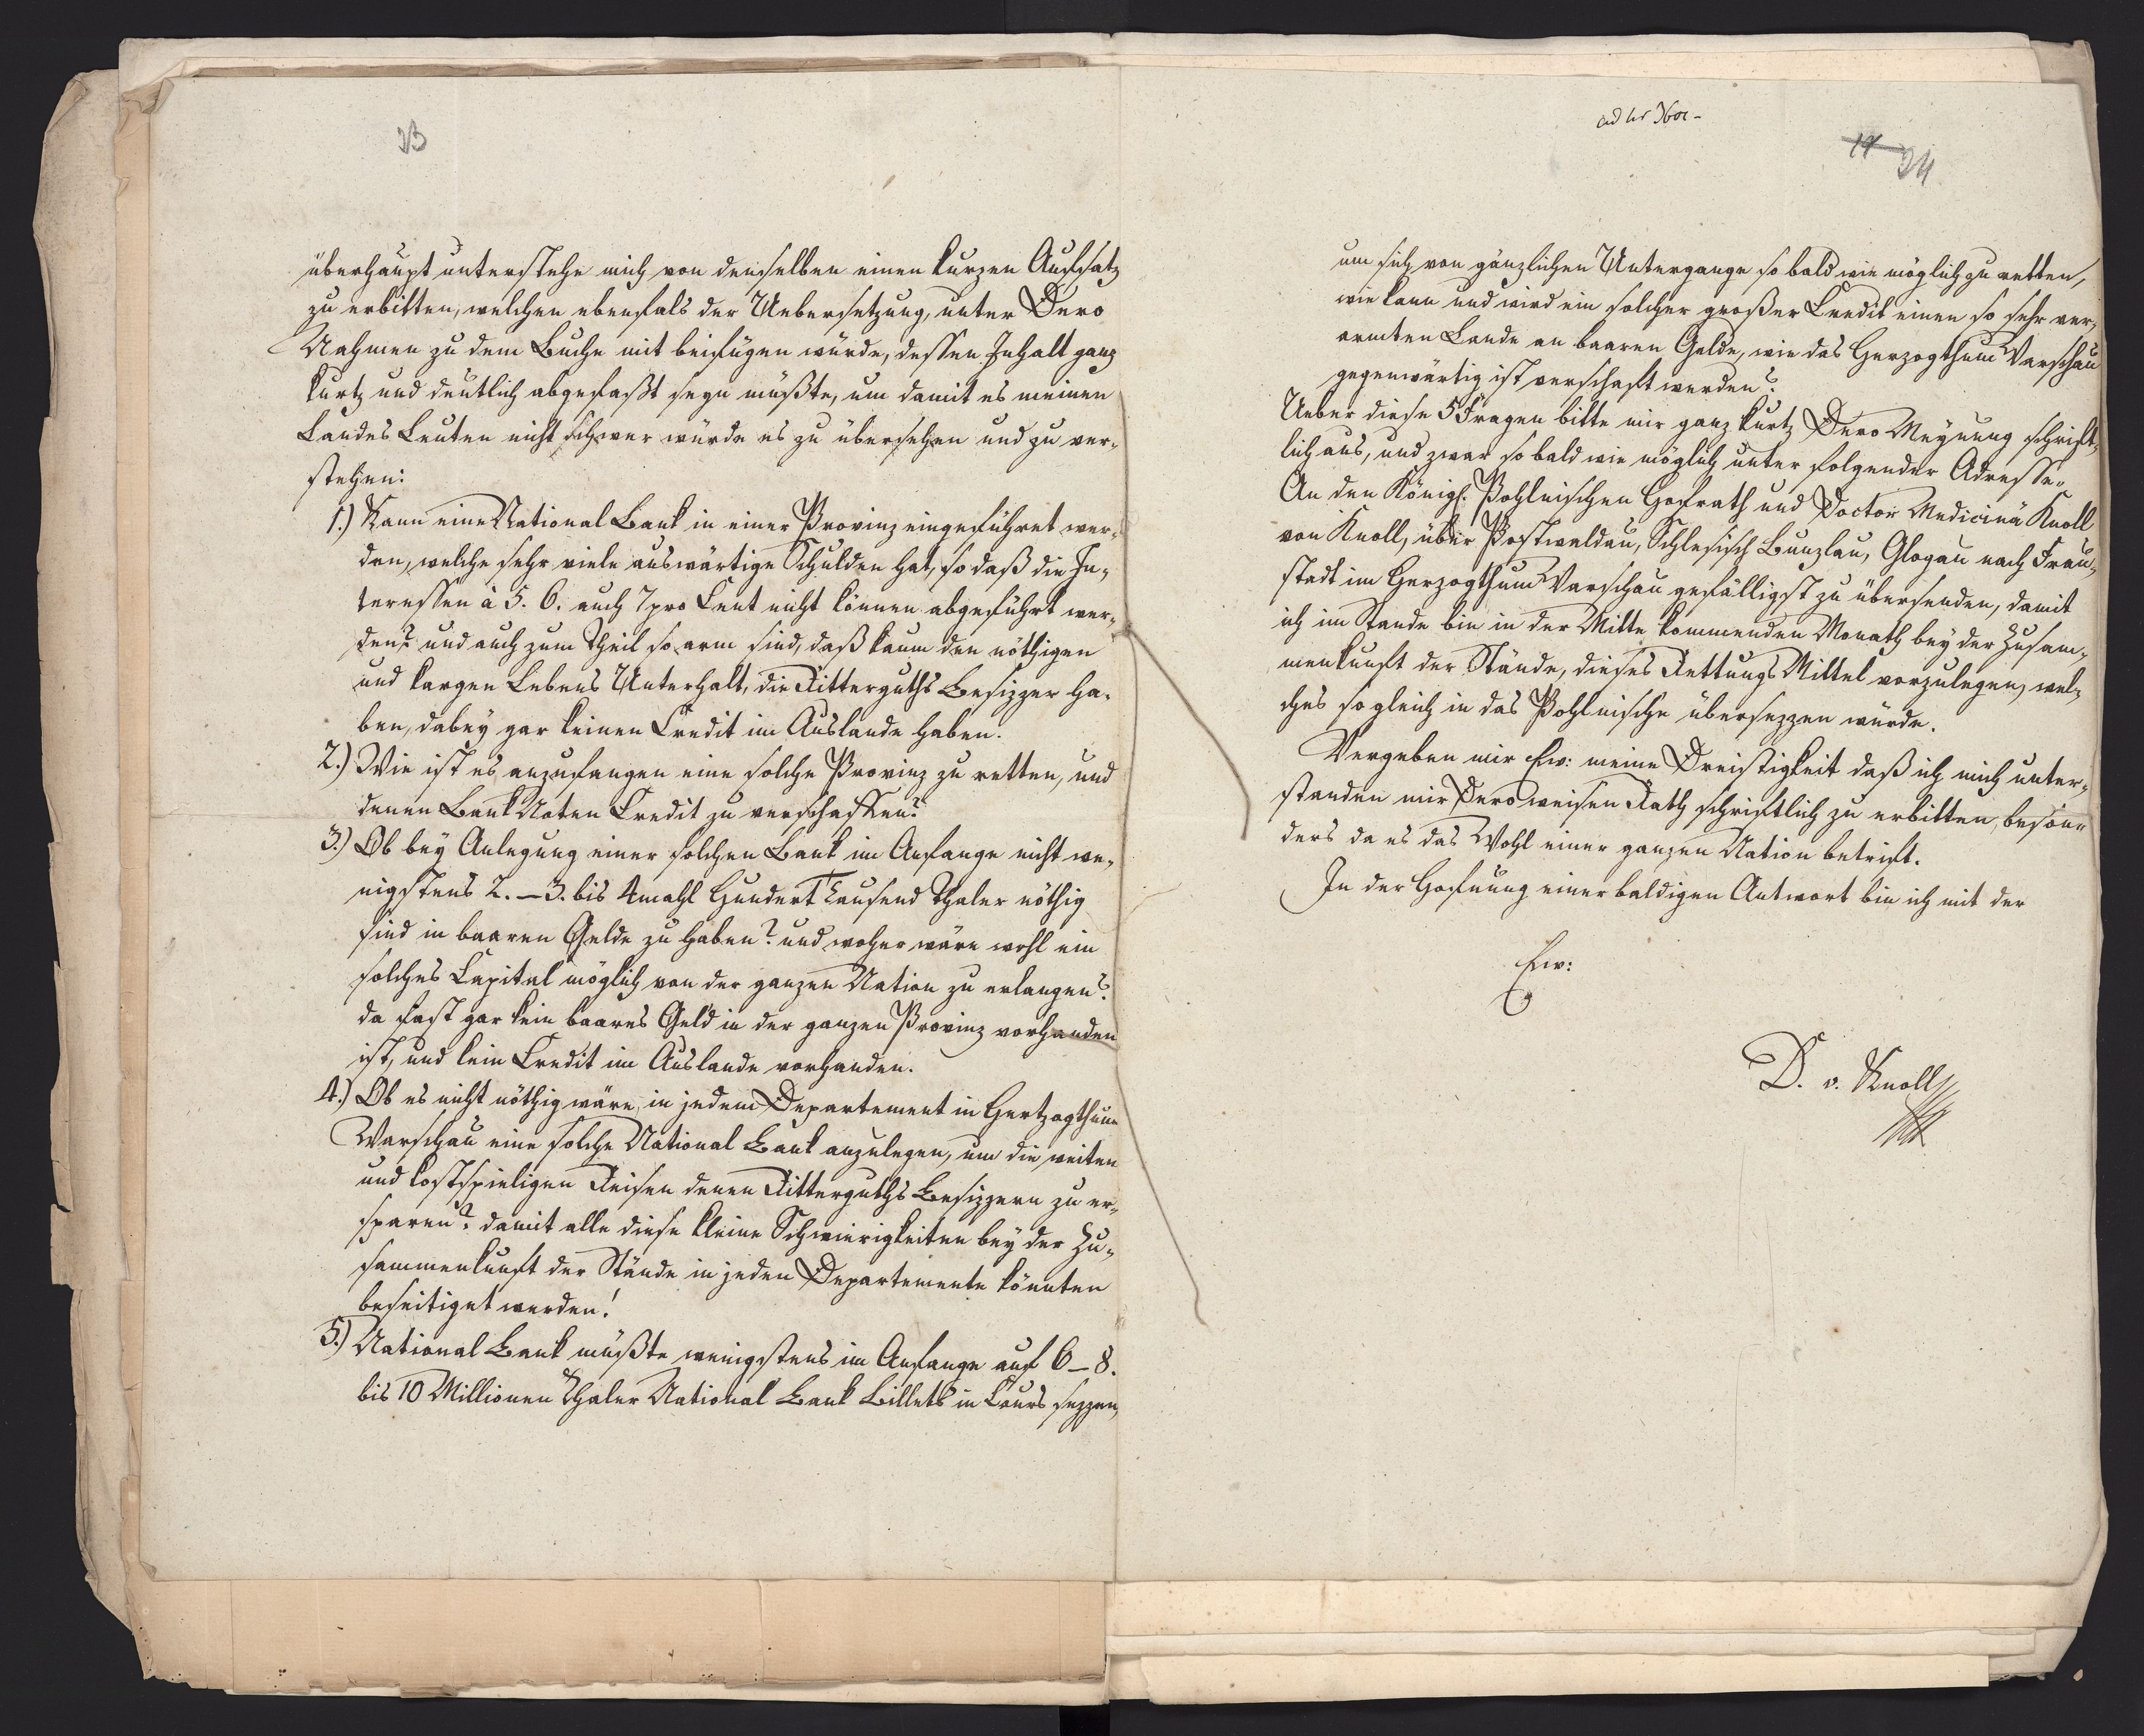 33
überhaupt unterstehe mich von denselben einen kurzen Aufsatz
zu erbitten, welchen ebenfals der Uebersetzung, unter Dero
Nahmen zu dem Buche mit beifügen würde, dessen Inhalt ganz
kurtz und deutlich abgefaßt seyn müßte, um damit es meinen
Landes Leuten nicht schwer würde es zu übersehen und zu ver-
stehen:
1.) Kann eine National Bank in einer Provinz eingeführet wer-
den, welche sehr viele auswärtige Schulden hat, so daß die In-
teressen à 5. 6. auch 7 pro Cent nicht können abgeführt wer-
den? und auch zum Theil so arm sind, daß kaum den nöthigen
und kargen Lebens Unterhalt, die Ritterguths Besizzer ha-
ben, dabey gar keinen Credit im Auslande haben.
2.) Wie ist es anzufangen eine solche Provinz zu retten, und
denen Bank Noten Credit zu verschaffen?
3.) Ob bey Anlegung einer solchen Bank im Anfange nicht we-
nigstens 2. – 3. bis 4mahl Hundert Tausend Thaler nöthig
sind in baaren Gelde zu haben? und woher wäre wohl ein
solches Capital möglich von der ganzen Nation zu erlangen?
da fast gar kein baares Geld in der ganzen Provinz vorhanden
ist, und kein Credit im Auslande vorhanden.
4.) Ob es nicht nöthig wäre, in jedem Departement in Hertzogthum
Warschau eine solche National Bank anzulegen, um die weiten
und kostspieligen Reisen denen Ritterguths Besizzern zu er-
sparen? damit alle diese kleine Schwierigkeiten bey der Zu-
sammenkunft der Stände in jeden Departemente könnten
beseitiget werden!
5.) National Bank müßte wenigstens im Anfange auf 6 – 8.
bis 10 Millionen Thaler National Bank Billets in Cours sezzen,
19 34
um sich von gänzlichen Untergange so bald wie möglich zu retten,
wie kann und wird ein solcher großer Credit einen so sehr ver-
armten Lande an baaren Gelde, wie das Herzogthum Warschau
gegenwärtig ist verschaft werden?
Ueber diese 5 Fragen bitte mir ganz kurtz Dero Meynung schrift-
lich aus, und zwar so bald wie möglich unter folgender Adresse.
An den Königl. Pohlnischen Hofrath und Doctor Medicinä Knoll
von Knoll, über Postwaldau, Schlesisch Bunzlau, Glogau nach Frau-
stadt im Herzogthum Warschau gefälligst zu übersenden, damit
ich im Stande bin in der Mitte kommenden Monath bey der Zusam-
menkunft der Stände, dieses Rettungs Mittel vorzulegen, wel-
ches so gleich in das Pohlnische übersezzen würde.
Vergeben mir Ew: meine Dreistigkeit daß ich mich unter-
standen mir Dero weisen Rath schriftlich zu erbitten, beson-
ders da es das Wohl einer ganzen Nation betrift.
In der Hofnung einer baldigen Antwort bin ich mit der
Ew:
D. v. Knoll